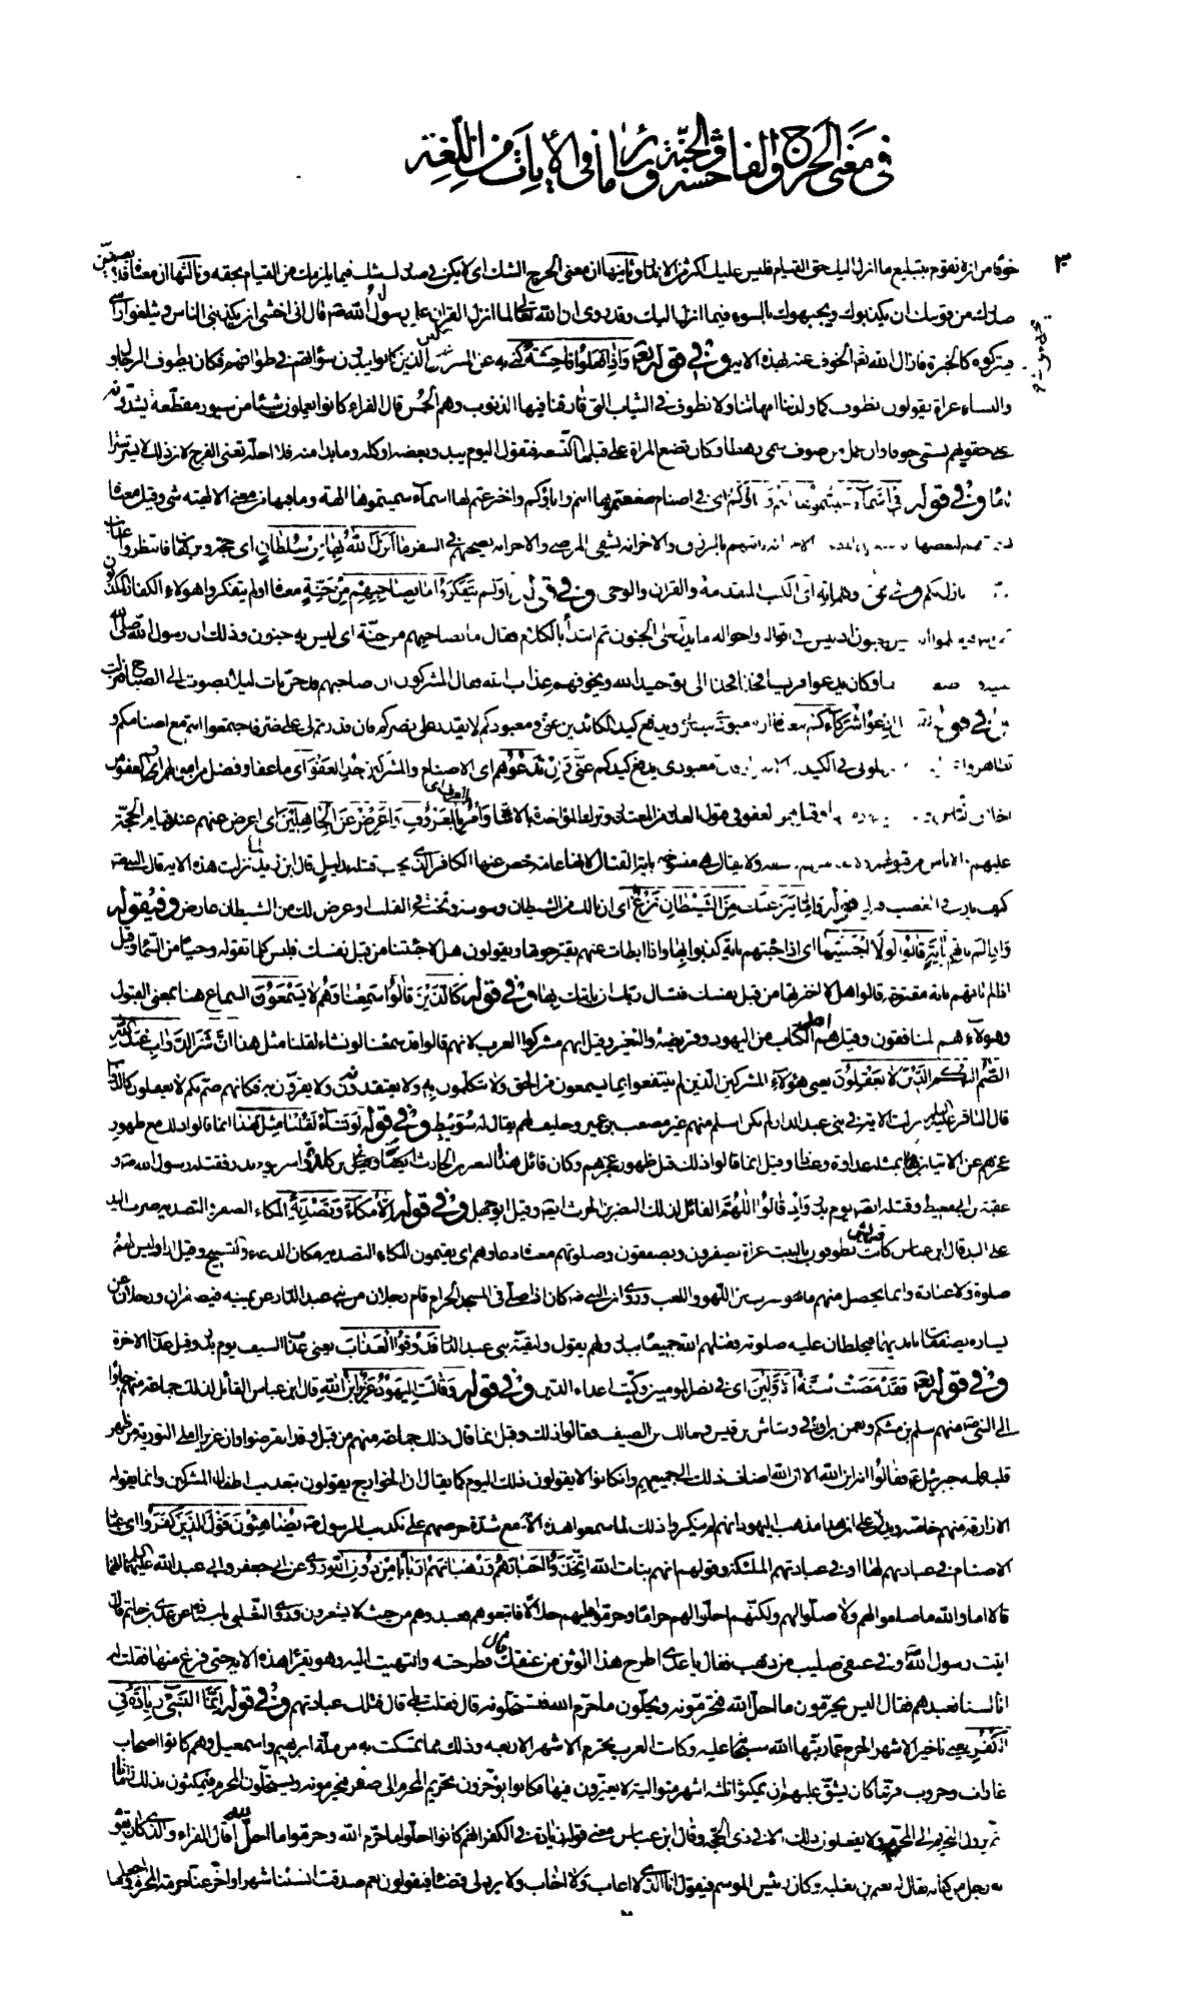 في معنى الحرج والفاحشة والجنة وسائر ما في الآيات من اللغة
٣
خوفا من ان لا تقوم بتبليغ ما انزل اليك حق القيام فليس عليك اكثر من الانذار وثانيها ان معنى الحرج الشك اى لا يكن في صدرك شك فيما يلزمك من القيام بحقه وثالثها ان معناه فلا يضيقن
صدرك من قومك ان يكذبوك ويجبهوك بالسوء فيما انزل اليك وقد روى ان الله تعالى لما انزل القران على رسول الله قال انى اخشى ان يكذبنى الناس ويثلغوا رأسى
فيتركوه كالخبزة فازال الله الخوف عنه بهذه الاية وفي قوله تعالى وَاِذا فَعَلُوا فاحِشَةً كنى به عن المشركين الذين كانوا يبدون سوآتهم في طوافهم فكان يطوف الرجال و
والنساء عراة يقولون نطوف كما ولدتنا امهاتنا ولا نطوف في الثياب التى قارفنا فيها الذنوب وهم الحمس قال الفراء كانوا يعملون شيئا من سيور مقطعة يشدونه
على حقويهم يسمى حوفا وان عمل من صوف سمى رهطا وكان تضع المراة على قبلها النسعة فتقول اليوم يبدو بعضه او كله وما بدا منه فلا احله تعنى الفرج لان ذلك لا يستر سترا
تاما وفي قوله في اَسْماءٍ سَمَّيْتُمُوها اَنْتُمْ وَاباؤُكُمْ اى في اصنام صنعتموها انتم واباؤكم واخترعتم لها اسماء سميتموها الهة وما فيها من معنى الالهية شئ وقيل معناه
بالرزق والاخر انه يشفى المرضى والاخر انه يصحبهم في السفر ما اَنْزَلَ اللهُ بِها مِنْ سُلْطانٍ اى حجة وبرهان فانتظروا عذاب
اى الكتب المقدمة والقران والوحى وفي قوله اَوَلَمْ يَتَفَكَّرُوا ما بِصاحِبِهِمْ مِنْ جِنَّةٍ معناه اولم يتفكروا هؤلاء الكفار المكذبون
في اقواله وافعاله ما يدل على الجنون ثم ابتدأ بالكلام فقال ما بصاحبهم من جنة اى ليس به جنون وذلك ان رسول الله صلى الله
وكان يدعو قريشا فخذا فخذا الى توحيد الله ويخوفهم عذاب الله فقال المشركون ان صاحبهم قد جن بات ليلا يصوت الى الصباح فنزلت
ادْعُوا شُرَكاءَكُمْ معبودى ينصرنى ويدفع كيد الكائدين عنى ومعبودكم لا يقدر على نصركم فان قدرتم لى على ضر فاجتمعوا انتم مع اصنامكم و
تظاهروا معبودى يدفع كيدكم عنى وَاِنْ تَدْعُوهُمْ اى الاصنام والمشركين خُذِ الْعَفْوَ اى ما عفا وفضل من اموالهم او العفو من
اخلاق الناس العفو في قبول العذر من المعتذر وترك المؤاخذة بالاساءة وَأْمُرْ بِالْعُرْفِ اى بالمعروف وَاَعْرِضْ عَنِ الْجاهِلِينَ اى اعرض عنهم عند قيام الحجة
عليهم والاياس من قبولهم ولا يقال هى منسوخة باية القتال لانها عامة خص عنها الكافر الذى يجب قتله بدليل قال ابن زيد لما نزلت هذه الاية قال النبى
كيف يا رب والغضب وفي قوله وَاِمّا يَنْزَغَنَّكَ مِنَ الشَّيْطانِ نَزْغٌ اى ان نالك من الشيطان وسوسة ونخسة في القلب او عرض لك من الشيطان عارض وفي قوله
وَاِذا لَمْ تَأْتِهِمْ بِايَةٍ قالُوا لَوْلا اجْتَبَيْتَها اى اذا جئتهم باية كذبوا بها واذا ابطأت عنهم يقترحونها ويقولون هلا جئتنا من قبل نفسك فليس كلما تقوله وحيا من السماء وقيل
اذا لم تاتهم باية مقترحة قالوا هلا اخترتها من قبل نفسك فتسأل ربك ان ياتيك بها وفي قوله كَالَّذِينَ قالُوا سَمِعْنا وَهُمْ لا يَسْمَعُونَ السماع هنا بمعنى القبول
وهؤلاء هم المنافقون وقيل هم اهل الكتاب من اليهود وقريظة والنضير وقيل انهم مشركوا العرب لانهم قالوا قد سمعنا لو نشاء لقلنا مثل هذا اِنَّ شَرَّ الدَّوابِّ عِنْدَ اللهِ
الصُّمُّ الْبُكْمُ الَّذِينَ لا يَعْقِلُونَ يعنى هؤلاء المشركين الذين لم ينتفعوا بما يسمعون من الحق ولا يتكلمون به ولا يعتقدونه ولا يقرون به فكانهم صم بكم لا يعقلون كالدواب
قال الباقر عليه السلام نزلت الاية في بنى عبد الدار لم يكن اسلم منهم غير مصعب بن عمير وحليف لهم يقال له سويبط وفي قوله لَوْ نَشاءُ لَقُلْنا مِثْلَ هذا انما قالوا ذلك مع ظهور
عجزهم عن الاتيان بمثله عداوة وعنادا وقيل انما قالوا ذلك قبل ظهور عجزهم وكان قائل هذا النضر بن الحارث بن كلدة واسر يوم بدر فقتله رسول الله و
عقبة بن ابى معيط وقتله ايضا يوم بدر وَاِذْ قالُوا اللّهُمَّ القائل لذلك النضر بن الحرث ايضا وقيل ابو جهل وفي قوله اِلّا مُكاءً وَتَصْدِيَةً المكاء الصفير والتصدية ضرب اليد
على اليد قال ابن عباس كانت قريش يطوفون بالبيت عراة يصفرون ويصفقون وصلوتهم معناه دعاؤهم اى يقيمون المكاء والتصدية مكان الدعاء والتسبيح وقيل اراد ليس لهم
صلوة ولا عبادة وانما يحصل منهم ما هو ضرب من اللهو واللعب وروى ان النبى كان اذا صلى في المسجد الحرام قام رجلان من بنى عبد الدار عن يمينه فيصفران ورجلان عن
يساره يصفقان بايديهما فيخلطان عليه صلوته فقتلهم الله جميعا ببدر ولهم يقول ولبقية بنى عبد الدار فَذُوقُوا الْعَذابَ يعنى عذاب السيف يوم بدر وقيل عذاب الاخرة
وفي قوله تعالى فَقَدْ مَضَتْ سُنَّةُ الْاَوَّلِينَ اى في نصر المؤمنين وكبت اعداء الدين وفي قوله وَقالَتِ الْيَهُودُ عُزَيْرٌ ابْنُ اللهِ قال ابن عباس القائل لذلك جماعة منهم جاؤا
الى النبى منهم سلام بن مشكم ونعمن بن اوفى وشاش بن قيس ومالك بن الصيف فقالوا ذلك وقيل انما قال ذلك جماعة منهم من قبل وقد انقرضوا وان عزيرا املى التورية من ظهر
قلبه علمه جبرئيل فقالوا انه ابن الله الا ان الله اضاف ذلك الى جميعهم وان كانوا لا يقولون ذلك اليوم كما يقال ان الخوارج يقولون بتعذيب اطفال المشركين وانما يقوله
الازارقة منهم خاصة ويدل على ان هذا مذهب اليهود انهم لم ينكروا ذلك لما سمعوا هذه الاية مع شدة حرصهم على تكذيب الرسول يُضاهِئُونَ قَوْلَ الَّذِينَ كَفَرُوا اى عباد
الاصنام في عبادتهم لها او في عبادتهم الملئكة وقولهم انهم بنات الله اِتَّخَذُوا اَحْبارَهُمْ وَرُهْبانَهُمْ اَرْبابًا مِنْ دُونِ اللهِ روى عن ابى جعفر وابى عبد الله عليهما السلام انهما
قالا اما والله ما صاموا لهم ولا صلوا لهم ولكنهم احلوا لهم حراما وحرموا عليهم حلالا فاتبعوهم فعبدوهم من حيث لا يشعرون وروى الثعلبى باسناده عن عدى بن حاتم قال
اتيت رسول الله وفي عنقى صليب من ذهب فقال يا عدى اطرح هذا الوثن من عنقك قال فطرحته وانتهيت اليه وهو يقرأ هذه الاية حتى فرغ منها فقلت له
انا لسنا نعبدهم فقال اليس يحرمون ما احل الله فتحرمونه ويحلون ما حرم الله فتستحلونه قال فقلت بلى قال فتلك عبادتهم وفي قوله اِنَّمَا النَّسِيءُ زِيادَةٌ فِي
الْكُفْرِ يعنى تاخير الاشهر الحرم عما رتبها الله سبحانه عليه وكانت العرب تحرم الاشهر الاربعة وذلك مما تمسكت به من ملة ابرهيم واسمعيل وهم كانوا اصحاب
غارات وحروب فربما كان يشق عليهم ان يمكثوا ثلثة اشهر متوالية لا يغيرون فيها فكانوا يؤخرون تحريم المحرم الى صفر فيحرمونه ويستحلون المحرم فيمكثون بذلك زمانا
ثم يزول التحريم الى المحرم ولا يفعلون ذلك الا في ذى الحجة وقال ابن عباس معنى قوله زيادة في الكفر انهم كانوا احلوا ما حرم الله وحرموا ما احل الله قال الفراء والذى كان يقوم
به رجل من كنانة يقال له نعيم بن ثعلبة وكان رئيس الموسم فيقول انا الذى لا اعاب ولا اخاب ولا يرد لى قضاء فيقولون نعم صدقت انسئنا شهرا او اخر عنا حرمة المحرم واجعلها